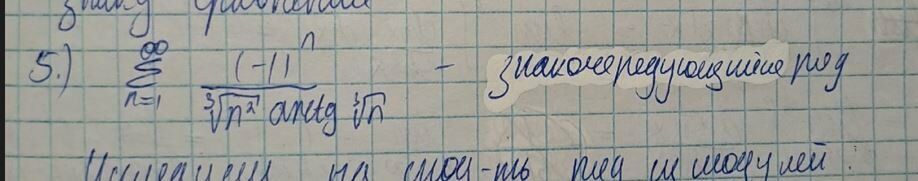 знаку
5.) ∞ Σ n=1 (-1)^n / ∛n² arctg ∛n - знакочередующийся ряд
Исследуем на сход-ть ряд из модулей: